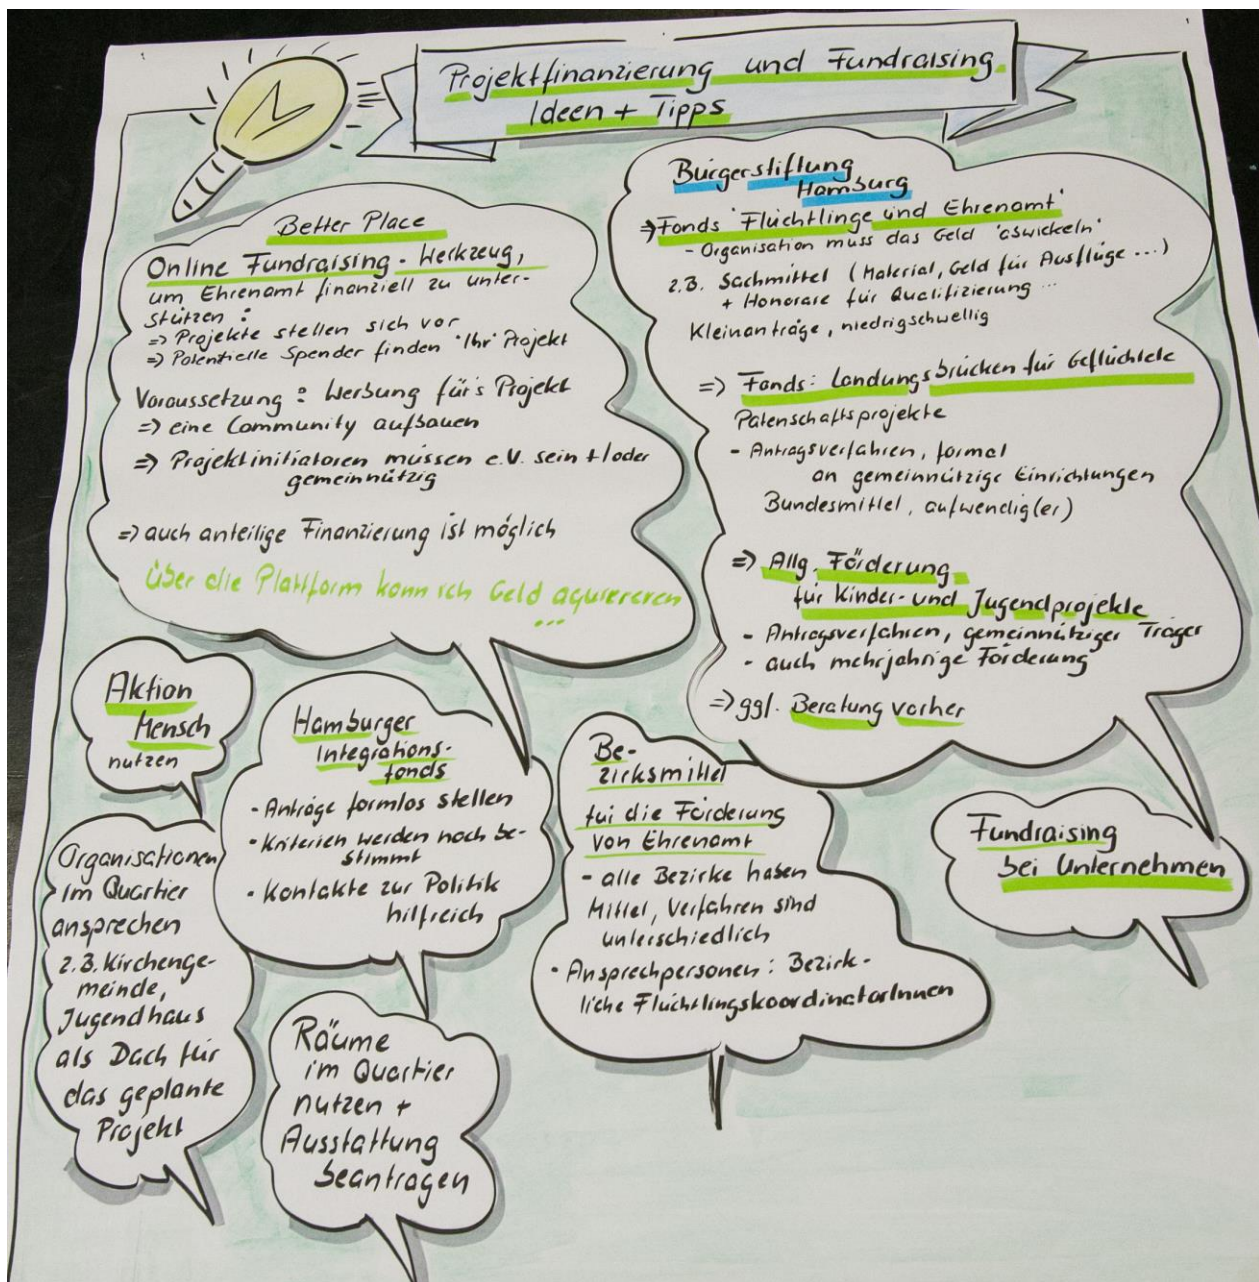 Projektfinanzierung und Fundraising
Ideen + Tipps
Better Place
Online Fundraising - Werkzeug,
um Ehrenamt finanziell zu unter-
stützen :
=> Projekte stellen sich vor
=> Potentielle Spender finden "Ihr" Projekt
Voraussetzung : Werbung für's Projekt
=> eine Community aufbauen
=> Projektinitiatoren müssen e.V. sein +/oder
gemeinnützig
=> auch anteilige Finanzierung ist möglich
Über die Plattform kann ich Geld aquirereren
...
Bürgerstiftung
Hamburg
=> Fonds "Flüchtlinge und Ehrenamt"
- Organisation muss das Geld "abwickeln"
z.B. Sachmittel (Material, Geld für Ausflüge ...)
+ Honorare für Qualifizierung ...
Kleinanträge, niedrigschwellig
=> Fonds: Landungsbrücken für Geflüchtete
Patenschaftsprojekte
- Antragsverfahren, formal
an gemeinnützige Einrichtungen
Bundesmittel, aufwendig(er)
=> Allg. Förderung
für Kinder- und Jugendprojekte
- Antragsverfahren, gemeinnütziger Träger
- auch mehrjährige Förderung
=> ggf. Beratung vorher
Aktion
Mensch
nutzen
Hamburger
Integrations-
fonds
- Anträge formlos stellen
- Kriterien werden noch be-
stimmt
- Kontakte zur Politik
hilfreich
Be-
zirksmittel
für die Förderung
von Ehrenamt
- alle Bezirke haben
Mittel, Verfahren sind
unterschiedlich
- Ansprechpersonen : Bezirk-
liche FlüchtlingskoordinatorInnen
Fundraising
bei Unternehmen
Organisationen
im Quartier
ansprechen
z.B. Kirchenge-
meinde,
Jugendhaus
als Dach für
das geplante
Projekt
Räume
im Quartier
nutzen +
Ausstattung
beantragen